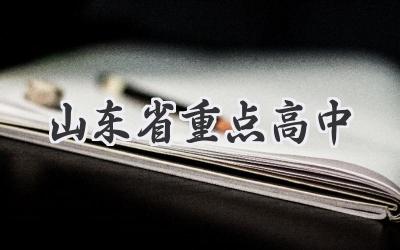 山东省重点高中